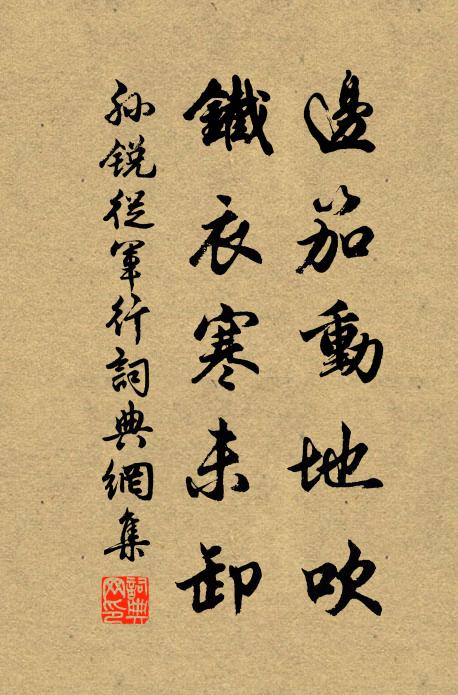 邊笳動地吹
鐵衣寒未卸
孙銳從軍行詞典網集
詞典网印